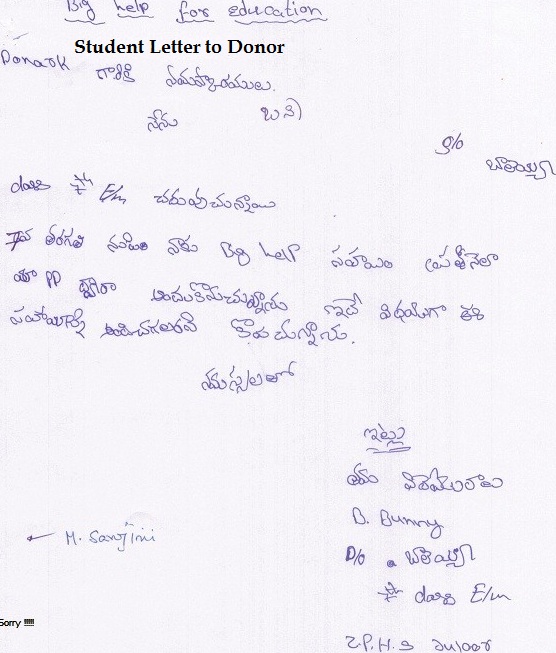 Big help for education
Student Letter to Donor
గారికి నమస్కారములు.
నేను బని
class 7th E/m చదువుచున్నాయి
7వ తరగతి నుండి నాకు Big help సహాయం ప్రతీనెలా
మా pp ద్వారా అందుకొనుచున్నాను ఇదే విధముగా ఈ
సహాయాన్ని అందించగలరని కోరుచున్నాను.
నమస్తులతో
ఇట్లు
తమ విధేయురాలు
B. Bunny
D/o
M. Sanjini
class E/m
Sorry !!!!!
Z.P.H.S